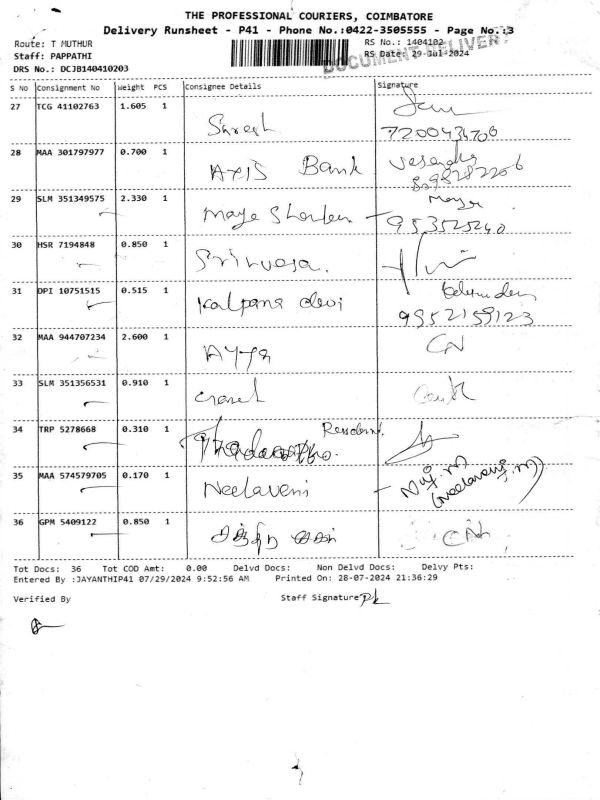 THE PROFESSIONAL COURIERS, COIMBATORE
Delivery Runsheet - P41 - Phone No.:0422-3505555 - Page No.:3
Route: T MUTHUR RS No.: 1404102
Staff: PAPPATHI RS Date: 29-Jul-2024
DOCUMENT DELIVERY
DRS No.: DCJB140410203
S No Consignment No Weight PCS Consignee Details Signature
27 TCG 41102763 1.605 1
Suresh 7200434706
28 MAA 301797977 0.700 1
AXIS Bank
29 SLM 351349575 2.330 1
953525240
30 HSR 7194848 0.850 1
31 DPI 10751515 0.515 1
Kalpana devi
9952159123
32 MAA 944707234 2.600 1
CN
33 SLM 351356531 0.910 1
34 TRP 5278668 0.310 1
Resident.
35 MAA 574579705 0.170 1
Neelaveni
(Neelaveni.m)
36 GPM 5409122 0.850 1
Tot Docs: 36 Tot COD Amt: 0.00 Delvd Docs: Non Delvd Docs: Delvy Pts:
Entered By :JAYANTHIP41 07/29/2024 9:52:56 AM Printed On: 28-07-2024 21:36:29
Verified By Staff Signature